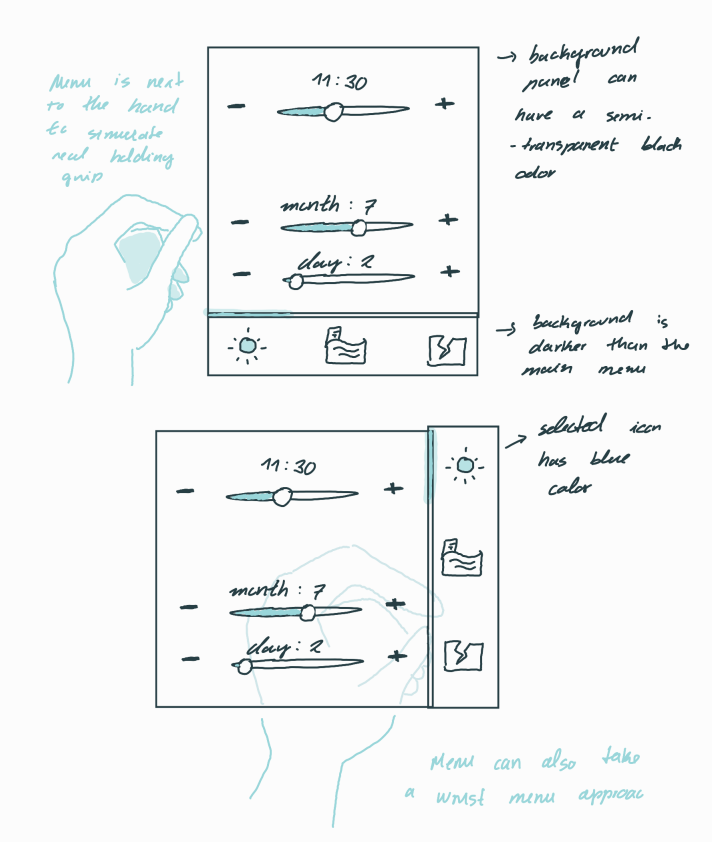 Menu is next
to the hand
to simulate
real holding
grip
11:30
- +
month : 7
- +
day: 2
- +
→ background
panel can
have a semi-
-transparent black
color
→ background is
darker than the
main menu
→ selected icon
has blue
color
11:30
- +
month : 7
- +
day: 2
- +
Menu can also take
a wrist menu approac